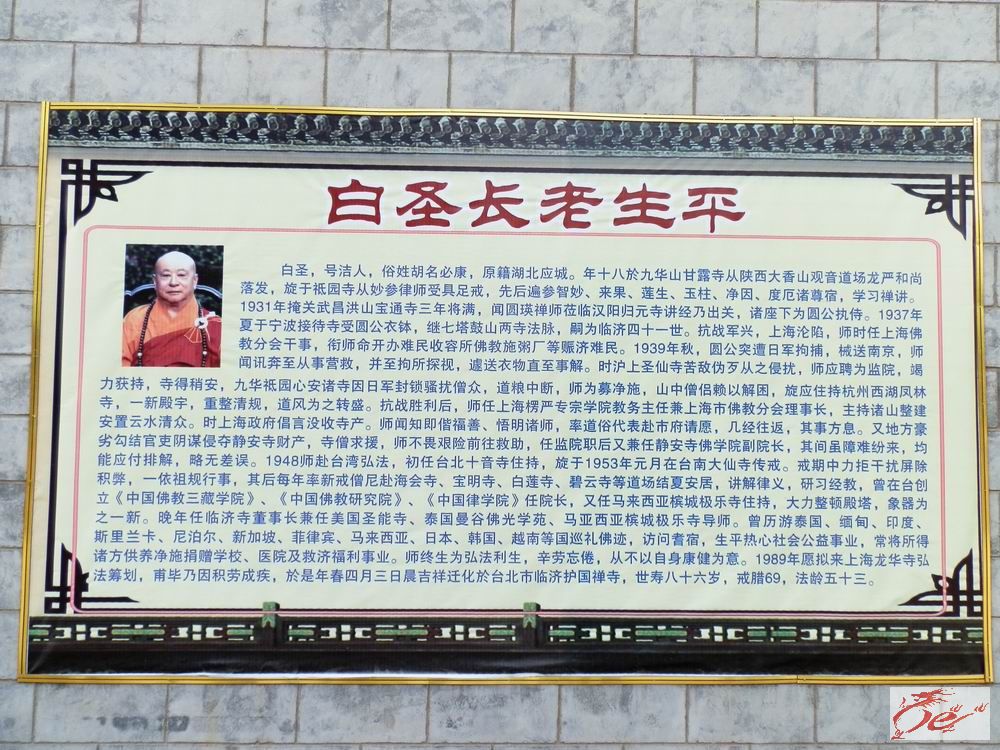 白圣长老生平
白圣，号洁人，俗姓胡名必康，原籍湖北应城。年十八於九华山甘露寺从陕西大香山观音道场龙严和尚
落发，旋于祗园寺从妙参律师受具足戒，先后遍参智妙、来果、莲生、玉柱、净因、度厄诸尊宿，学习禅讲。
1931年掩关武昌洪山宝通寺三年将满，闻圆瑛禅师莅临汉阳归元寺讲经乃出关，诸座下为圆公执侍。1937年
夏于宁波接待寺受圆公衣钵，继七塔鼓山两寺法脉，嗣为临济四十一世。抗战军兴，上海沦陷，师时任上海佛
教分会干事，衔师命开办难民收容所佛教施粥厂等赈济难民。1939年秋，圆公突遭日军拘捕，械送南京，师
闻讯奔至从事营救，并至拘所探视，遽送衣物直至事解。时沪上圣仙寺苦敌伪歹从之侵扰，师应聘为监院，竭
力获持，寺得稍安，九华祗园心安诸寺因日军封锁骚扰僧众，道粮中断，师为募净施，山中僧侣赖以解困，旋应住持杭州西湖凤林
寺，一新殿宇，重整清规，道风为之转盛。抗战胜利后，师任上海楞严专宗学院教务主任兼上海市佛教分会理事长，主持诸山整建
安置云水清众。时上海政府倡言没收寺产。师闻知即偕福善、悟明诸师，率道俗代表赴市府请愿，几经往返，其事方息。又地方豪
劣勾结官吏阴谋侵夺静安寺财产，寺僧求援，师不畏艰险前往救助，任监院职后又兼任静安寺佛学院副院长，其间虽障难纷来，均
能应付排解，略无差误。1948师赴台湾弘法，初任台北十音寺住持，旋于1953年元月在台南大仙寺传戒。戒期中力拒干扰屏除
积弊，一依祖规行事，其后每年率新戒僧尼赴海会寺、宝明寺、白莲寺、碧云寺等道场结夏安居，讲解律义，研习经教，曾在台创
立《中国佛教三藏学院》、《中国佛教研究院》、《中国律学院》任院长，又任马来西亚槟城极乐寺住持，大力整顿殿塔，象器为
之一新。晚年任临济寺董事长兼任美国圣能寺、泰国曼谷佛光学苑、马亚西亚槟城极乐寺导师。曾历游泰国、缅甸、印度、
斯里兰卡、尼泊尔、新加坡、菲律宾、马来西亚、日本、韩国、越南等国巡礼佛迹，访问耆宿，生平热心社会公益事业，常将所得
诸方供养净施捐赠学校、医院及救济福利事业。师终生为弘法利生，辛劳忘倦，从不以自身康健为意。1989年愿拟来上海龙华寺弘
法筹划，甫毕乃因积劳成疾，於是年春四月三日晨吉祥迁化於台北市临济护国禅寺，世寿八十六岁，戒腊69，法龄五十三。